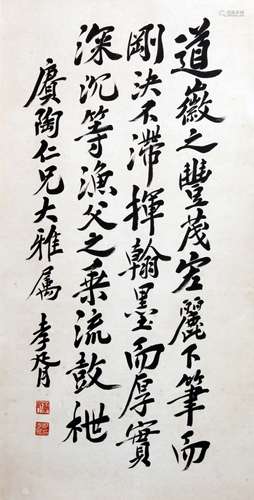 道徽之豐茂宏麗下筆而
剛決不滯揮翰墨而厚實
深沉等漁父之乘流鼓枻
賡陶仁兄大雅属 李